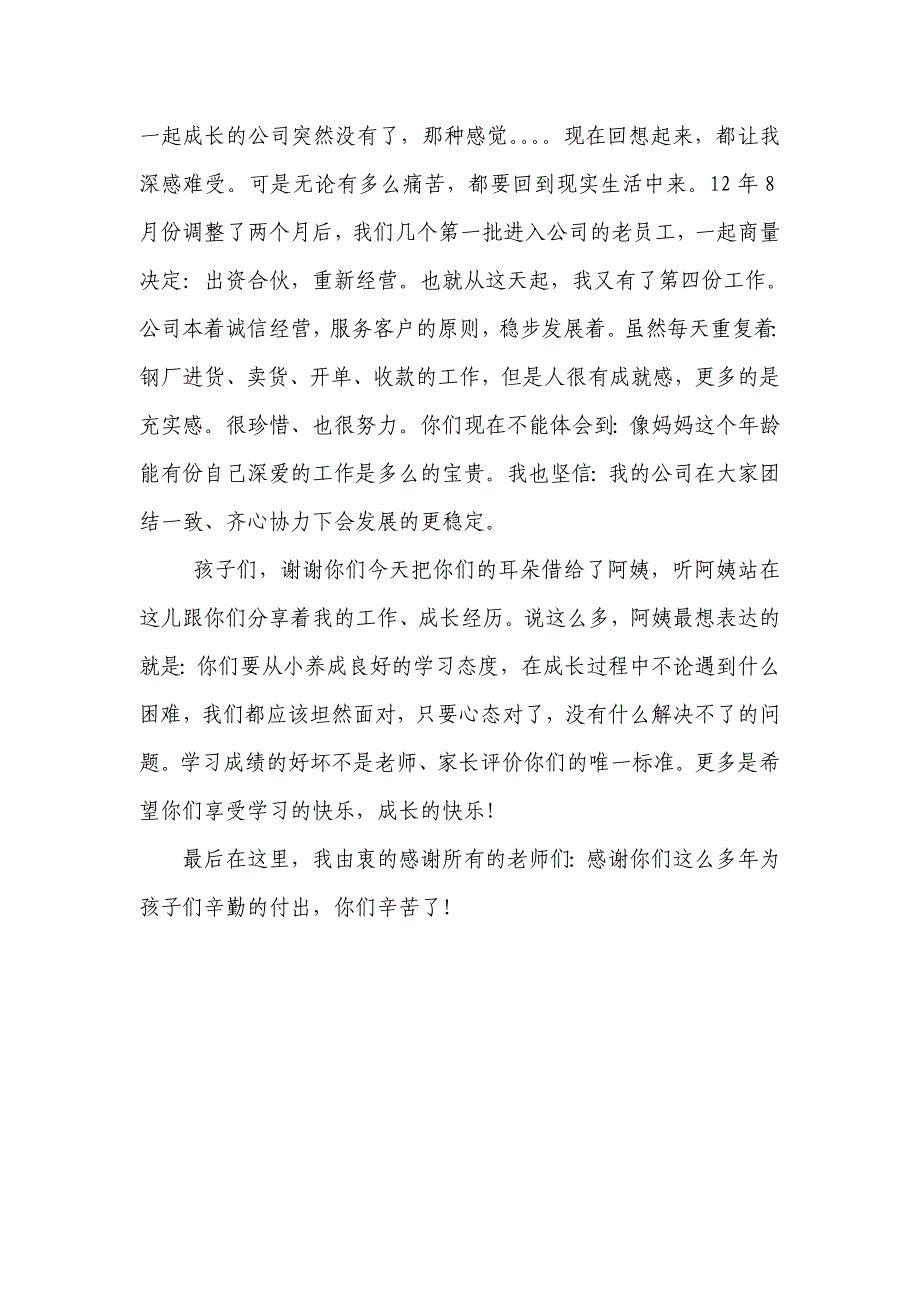 一起成长的公司突然没有了，那种感觉。。。。现在回想起来，都让我
深感难受。可是无论有多么痛苦，都要回到现实生活中来。12 年 8
月份调整了两个月后，我们几个第一批进入公司的老员工，一起商量
决定：出资合伙，重新经营。也就从这天起，我又有了第四份工作。
公司本着诚信经营，服务客户的原则，稳步发展着。虽然每天重复着：
钢厂进货、卖货、开单、收款的工作，但是人很有成就感，更多的是
充实感。很珍惜、也很努力。你们现在不能体会到：像妈妈这个年龄
能有份自己深爱的工作是多么的宝贵。我也坚信：我的公司在大家团
结一致、齐心协力下会发展的更稳定。
孩子们，谢谢你们今天把你们的耳朵借给了阿姨，听阿姨站在
这儿跟你们分享着我的工作、成长经历。说这么多，阿姨最想表达的
就是：你们要从小养成良好的学习态度，在成长过程中不论遇到什么
困难，我们都应该坦然面对，只要心态对了，没有什么解决不了的问
题。学习成绩的好坏不是老师、家长评价你们的唯一标准。更多是希
望你们享受学习的快乐，成长的快乐！
最后在这里，我由衷的感谢所有的老师们：感谢你们这么多年为
孩子们辛勤的付出，你们辛苦了！